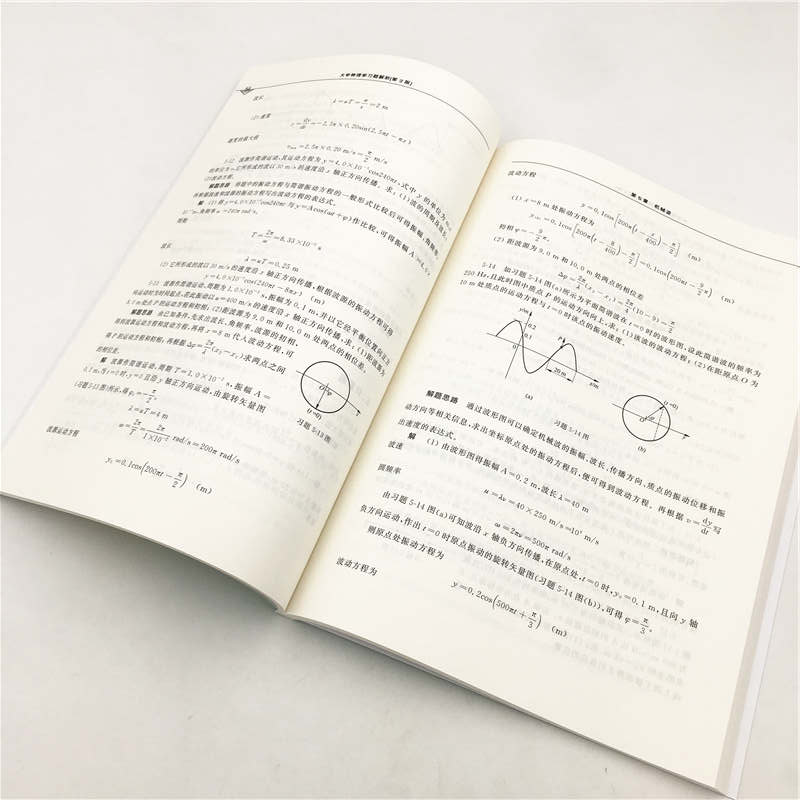 大学物理学习题解析(第2版)
波长
λ=uT=π/x=2 m
(2) 速度
v=dy/dt=-2.5π×0.20sin(2.5πt-πx)
速度的最大值
v_max=2.5π×0.20 m/s=π/2 m/s
5-12 波源作简谐运动,其运动方程为 y=4.0×10⁻³cos240πt,式中 y 的单位为 m,
t 的单位为 s,它所形成的波以 30 m/s 的速度沿 x 轴正方向传播。求:(1)波的周期及波长;
(2)波动方程。
解题思路 将题中的振动方程与简谐振动方程的一般形式比较后可得振幅、角频率,
解 (1) 将 y=4.0×10⁻³cos240πt 与 y=Acos(ωt+φ) 作比较,可得振幅 A=4.0×
10⁻³ m,角频率 ω=240π rad/s,
周期
T=2π/ω=8.33×10⁻³ s
波长
λ=uT=0.25 m
(2) 它所形成的波以 30 m/s 的速度沿 x 轴正方向传播,根据波源的振动方程可得
y=4.0×10⁻³cos(240πt-8πx) (m)
5-13 波源作简谐运动,周期为 1.0×10⁻² s,振幅为 0.1 m,并以它经平衡位置向正方
向运动时为时间起点,若此振动以 u=400 m/s 的速度沿 x 轴正方向传播。求:(1)距波源为
8.0 m 处点 P 的运动方程和初相;(2)距波源为 9.0 m 和 10.0 m 处两点的相位差。
解题思路 由已知条件,先求出波长、角频率、波源的初相,
得到波源运动方程和波动方程,再将 x=8 m 代入波动方程,可
得 P 的运动方程和初相;再根据 Δφ=2π/λ(x₂-x₁)求两点之间
的相位差。
解 波源作简谐运动,周期 T=1.0×10⁻² s,振幅 A=
0.1 m,当 t=0 时,y=0 且沿 y 轴正方向运动,由旋转矢量图
(习题 5-13 图)所示,得 φ₀=-π/2。
λ=uT=4 m
ω=2π/T=2π/1×10⁻² rad/s=200π rad/s
波源运动方程
y₀=0.1cos(200πt-π/2) (m)
O φ
(t=0)
习题 5-13 图
第 5 章 机械波
波动方程
y=0.1cos[200π(t-x/400)-π/2] (m)
(1) x=8 m 处振动方程为
y₍₈₎=0.1cos[200π(t-8/400)-π/2]=0.1cos(200πt-9/2π) (m)
初相 φ=-9/2π。
(2) 距波源为 9.0 m 和 10.0 m 处两点的相位差
Δφ=2π/λ(x₂-x₁)=2π/4(10-9)=π/2
5-14 如习题 5-14 图(a)所示为平面简谐波在 t=0 时的波形图,设此简谐波的频率为
250 Hz,且此时图中质点 P 的运动方向向上。求:(1)该波的波动方程;(2)在距原点 O 为
10 m 处质点的运动方程与 t=0 时该点的振动速度。
y/m
0.2
0.1
O
P
x/m
20 m
(a)
(t=0)
O
(b)
习题 5-14 图
解题思路 通过波形图可以确定机械波的振幅、波长、传播方向、质点的振动位移和振
动方向等相关信息,求出坐标原点处的振动方程后,便可得到波动方程。再根据 v=dy/dt 写
出速度的表达式。
解 (1) 由波形图得振幅 A=0.2 m,波长 λ=40 m
波速
u=λν=40×250 m/s=10⁴ m/s
圆频率
ω=2πν=500π rad/s
由习题 5-14 图(a)可知波沿 x 轴负方向传播,在原点处,t=0 时,y₀=0.1 m,且向 y 轴
负方向运动,作出 t=0 时原点振动的旋转矢量图(习题 5-14 图(b)),可得 φ=π/3。
则原点处振动方程为
y=0.2cos(500πt+π/3) (m)
波动方程为